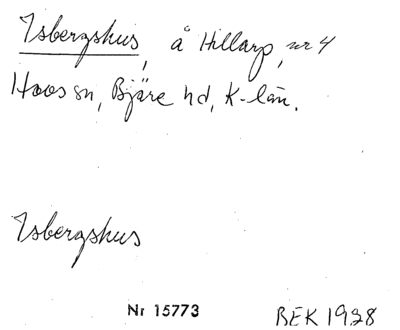 Isbergshus, å Hillarp, nr 4
Hovs sn, Bjäre hd, K-län.
Isbergshus
Nr 15773
BEK 1928